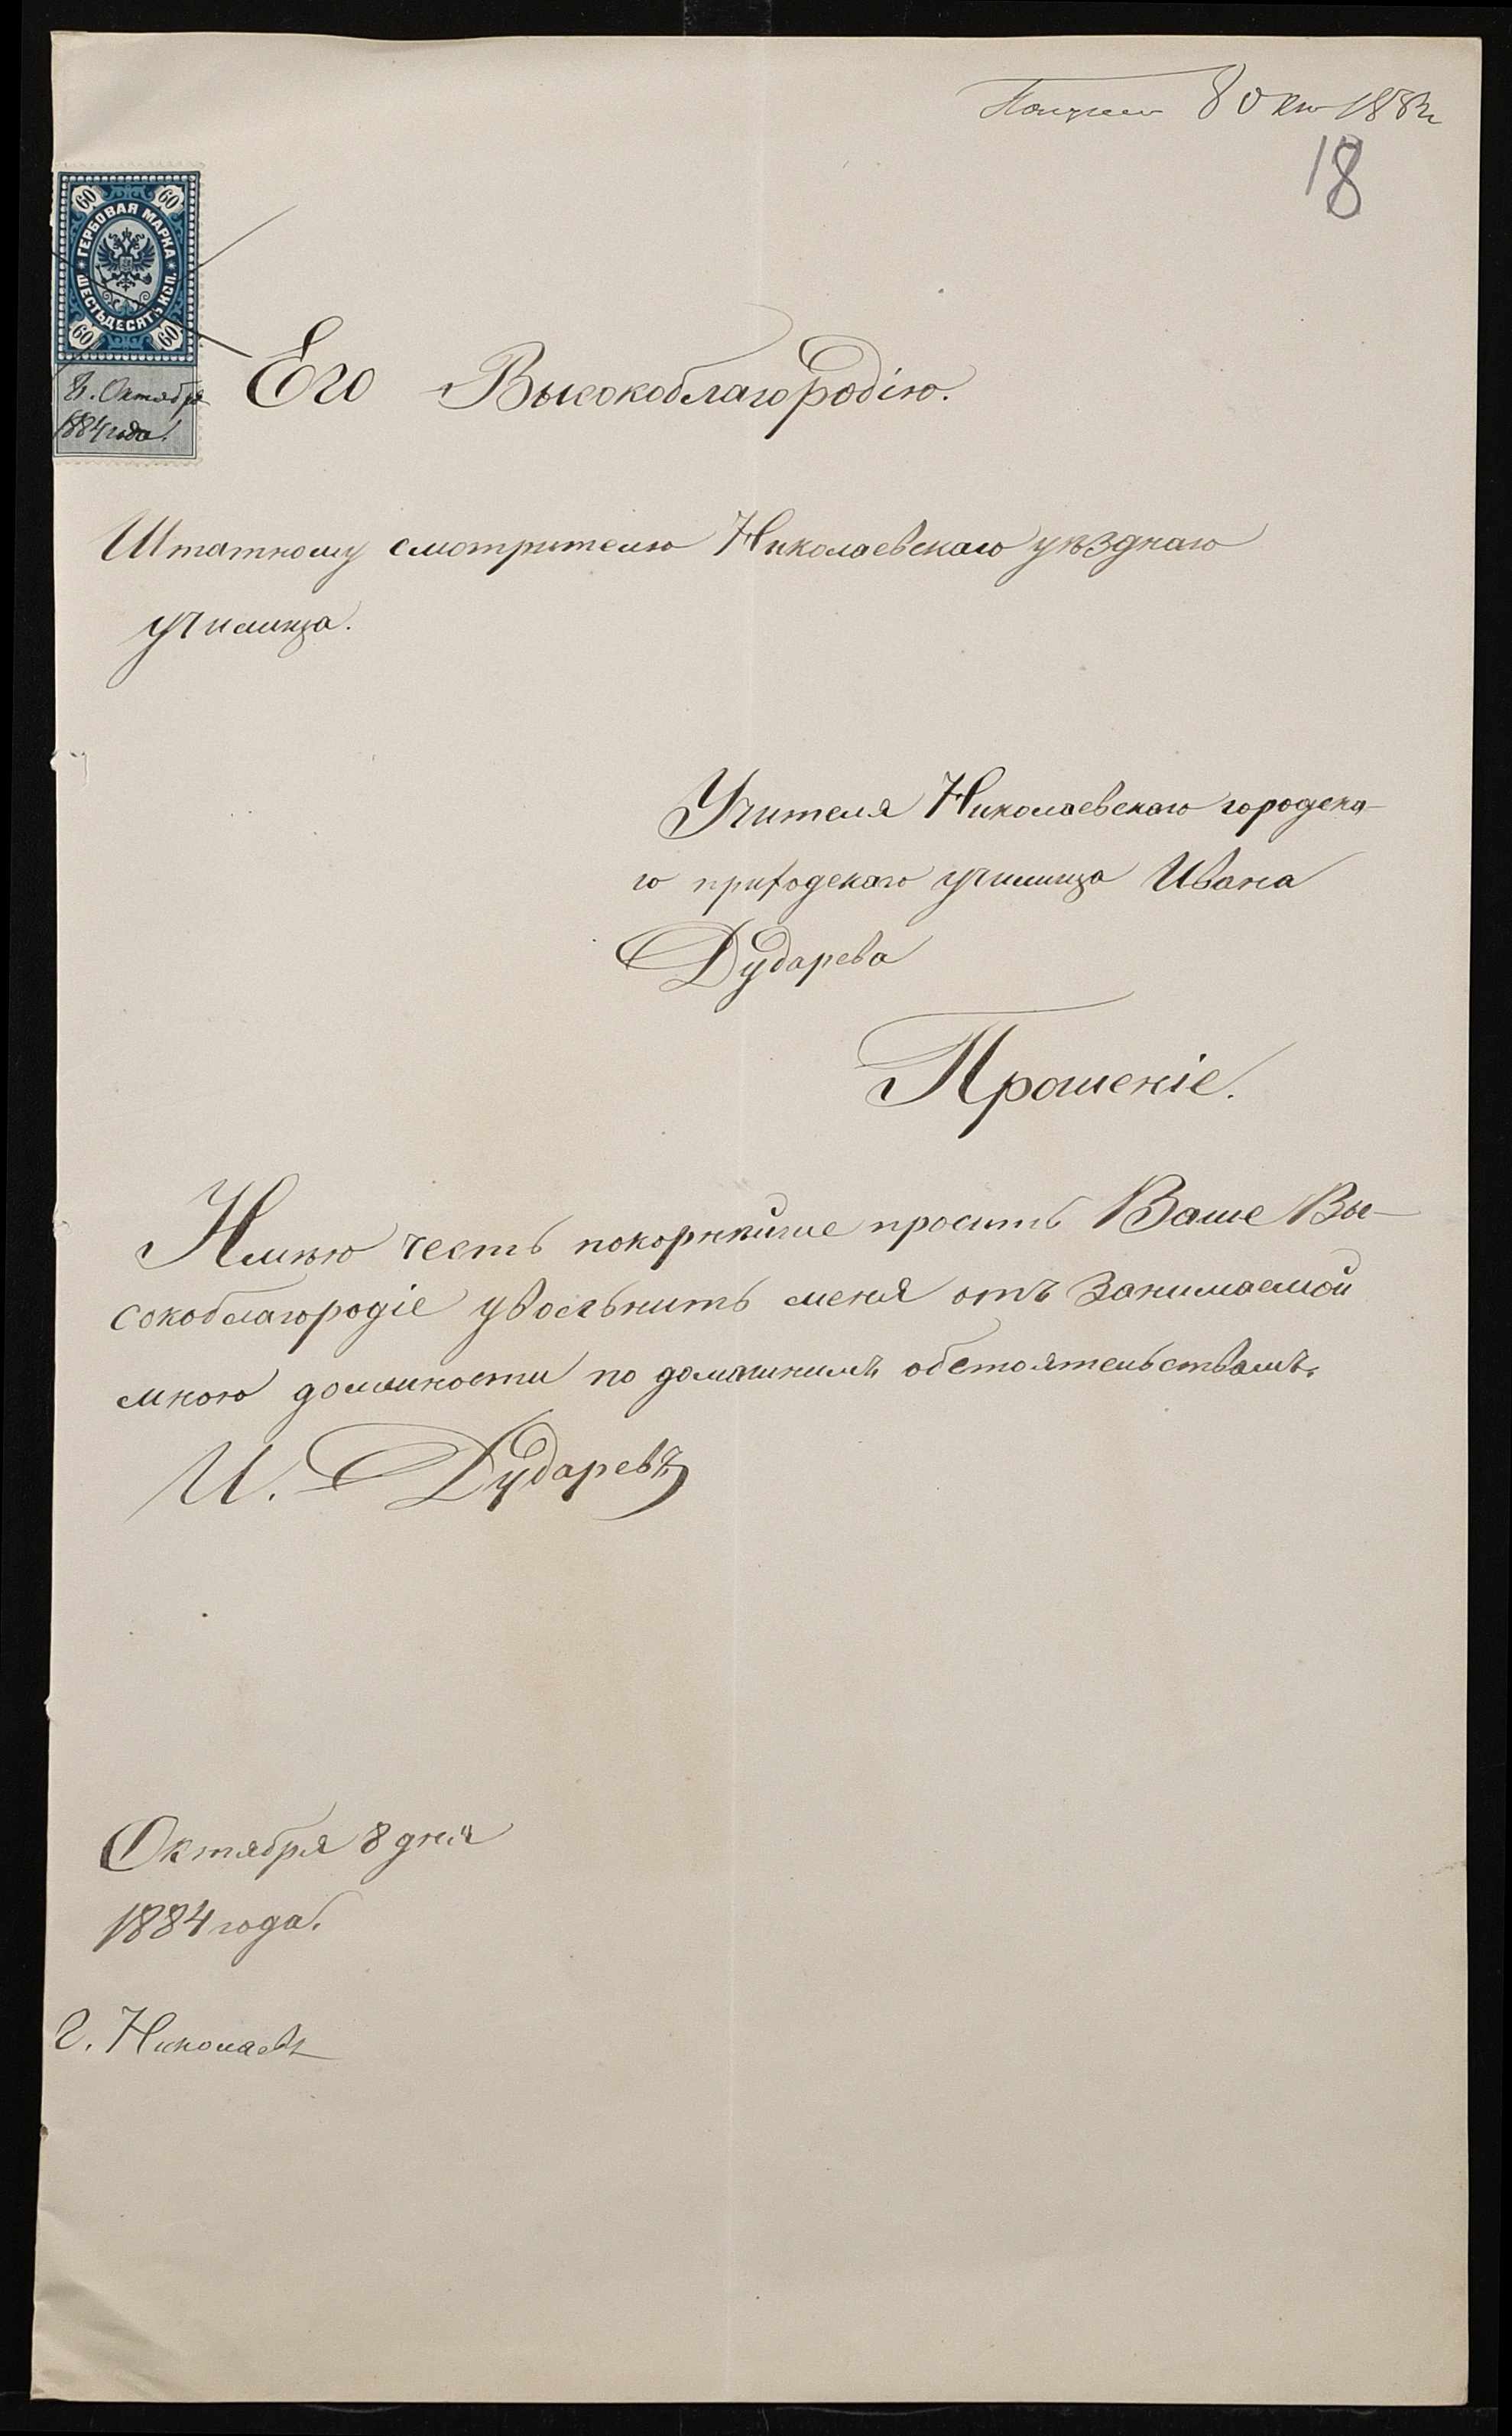 Получено 8 Окт 1884 г
18
60 60
ГЕРБОВАЯ МАРКА
ШЕСТЬДЕСЯТЪ КОП.
60 60
8. Октября
1884 года.
Его Высокоблагородію.
Штатному смотрителю Николаевскаго уѣзднаго
училища.
Учителя Николаевскаго городска-
го приходскаго училища Ивана
Дударева
Прошеніе.
Имѣю честь покорнѣйше просить Ваше Вы-
сокоблагородіе увольнить меня отъ занимаемой
мною должности по домашнимъ обстоятельствамъ.
И. Дударевъ
Октября 8 дня
1884 года.
г. Николаевъ